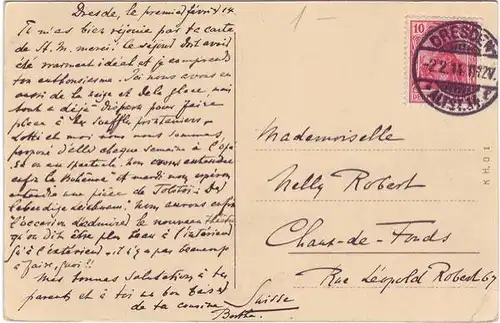 Dresde, le premier févri 14
Tu m'as bien réjouie par ta carte
de St. M. merci. le séjour doit avoir
été vraiment idéal et je comprends
ton enthousiasme. Ici nous avons eu
aussi de la neige et de la glace, mais
tout a déjà disparu pour faire
place à des souffles printaniers.
Lotti et moi nous nous sommes
proposé d'aller chaque semaine à l'opé
ra ou au spectacle. Nous avons entendu
la Bohême et mardi nous irons
entendre une pièce de Tolstoï: Der
lebendige Leichnam. Nous aurons
l'occasion d'admirer le nouveau théâtre
qu'on dit être plus beau à l'intérieur
qu'à l'extérieur. il n'y a pas beaucoup
à faire, quoi?!
Mes bonnes salutations à tes
parents et à toi un bon baiser
de ta cousine
Berthe.
1 -
10
DRESDEN
ALTST.
Mademoiselle
Nelly Robert
Chaux-de-Fonds
Rue Léopold Robert 67
Suisse